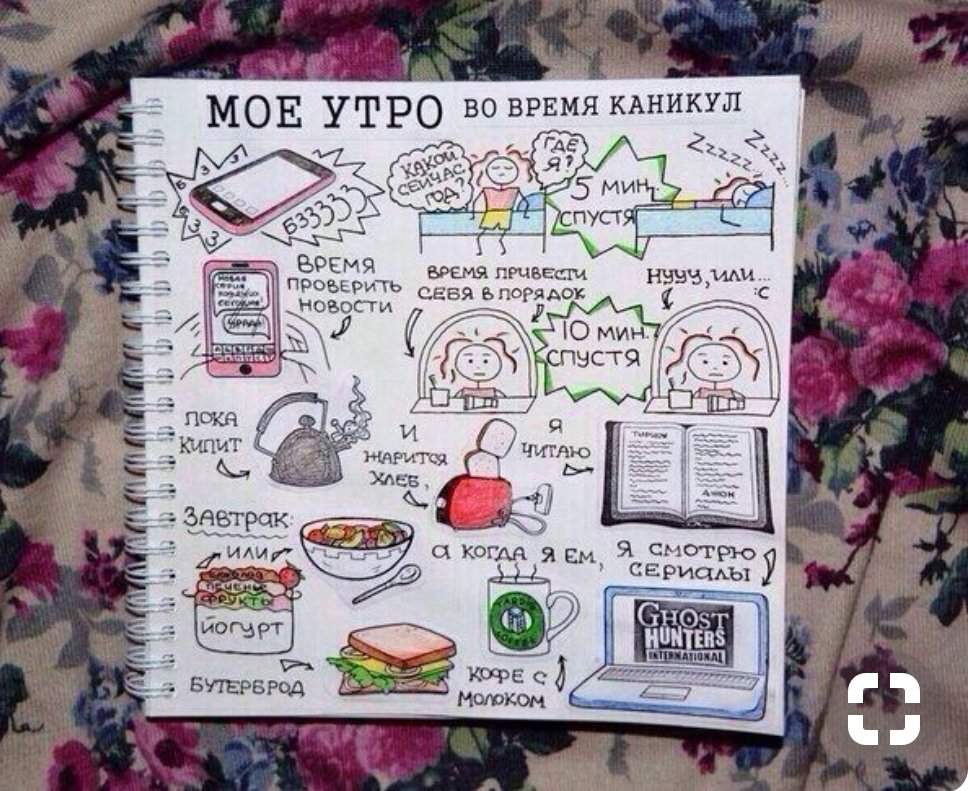 МОЕ УТРО ВО ВРЕМЯ КАНИКУЛ
БЗЗЗЗЗ
КАКОЙ
СЕЙЧАС
ГОД?
ГДЕ
Я?
5 МИН.
СПУСТЯ
Zzzzz...
Zzzz...
ВРЕМЯ
ПРОВЕРИТЬ
НОВОСТИ
НОВАЯ
СЕРИЯ
СЕГОДНЯ
УРАА!
ВРЕМЯ ПРИВЕСТИ
СЕБЯ В ПОРЯДОК
10 МИН.
СПУСТЯ
НУУУ, ИЛИ...
:С
ПОКА
КИПИТ
И
ЖАРИТСЯ
ХЛЕБ,
Я
ЧИТАЮ
ЗАВТРАК:
ИЛИ
ШОКОЛАД
ПЕЧЕНЬЕ
ФРУКТЫ
ЙОГУРТ
БУТЕРБРОД
А КОГДА Я ЕМ,
КОФЕ С
МОЛОКОМ
Я СМОТРЮ
СЕРИАЛЫ
GHOST
HUNTERS
INTERNATIONAL